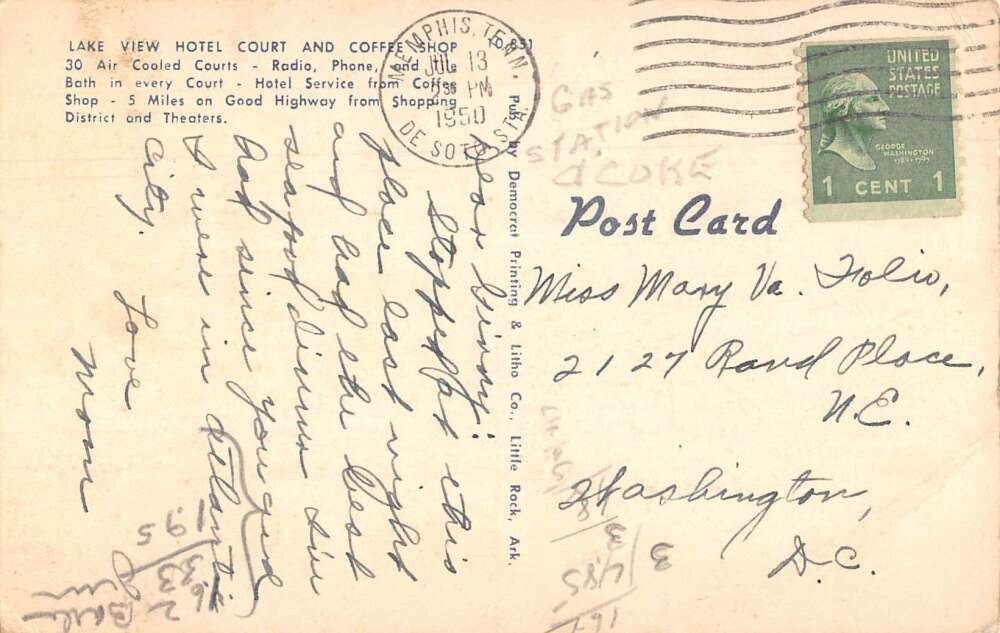 LAKE VIEW HOTEL COURT AND COFFEE SHOP
30 Air Cooled Courts - Radio, Phone, and Tile
Bath in every Court - Hotel Service from Coffee
Shop - 5 Miles on Good Highway from Shopping
District and Theaters.
MEMPHIS, TENN.
JUL 13
PM
1950
DE SOTO STA.
Pub. by Democrat Printing & Litho Co., Little Rock, Ark.
GAS
STATION
COKE
UNITED
STATES
POSTAGE
GEORGE
WASHINGTON
1789-1797
1 CENT 1
Post Card
Dear Ginny:
Stopped at this
place last night
and had the best
seafood dinner I've
had since you and
I were in Atlantic
City.
Love
Mom
Miss Mary Va. Folio,
2127 Rand Place,
N.E.
Washington,
D.C.
195
33
162
3